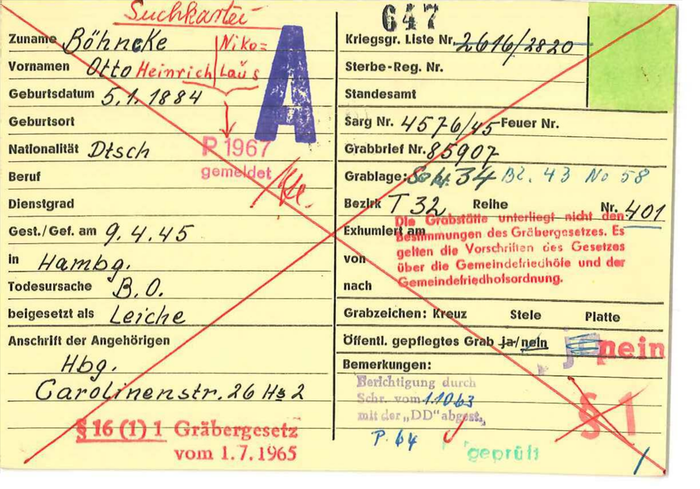 Suchkartei
647
Zuname Böhncke
Niko=
Vornamen Otto Heinrich Laŭs
A
Geburtsdatum 5.1.1884
Geburtsort
Nationalität Dtsch
R 1967
gemeldet
Beruf
Dienstgrad
Gest./Gef. am 9.4.45
in Hambg.
Todesursache B.O.
beigesetzt als Leiche
Anschrift der Angehörigen
Hbg.
Carolinenstr. 26 Hs 2
§ 16 (1) 1 Gräbergesetz
vom 1.7.1965
Kriegsgr. Liste Nr. 2616/2820
Sterbe-Reg. Nr.
Standesamt
Sarg Nr. 4576/45 Feuer Nr.
Grabbrief Nr. 85907
Grablage: 34 Bl. 43 No 58
Bezirk T 32 Reihe Nr. 401
Die Grabstätte unterliegt nicht den
Exhumiert am Bestimmungen des Gräbergesetzes. Es
von gelten die Vorschriften des Gesetzes
über die Gemeindefriedhöfe und der
nach Gemeindefriedhofsordnung.
Grabzeichen: Kreuz Stele Platte
Öffentl. gepflegtes Grab ja/nein ja nein
Bemerkungen:
Berichtigung durch
Schr. vom 1.10.63
mit der „DD" abgest.
§ 1
P. 64
geprüft